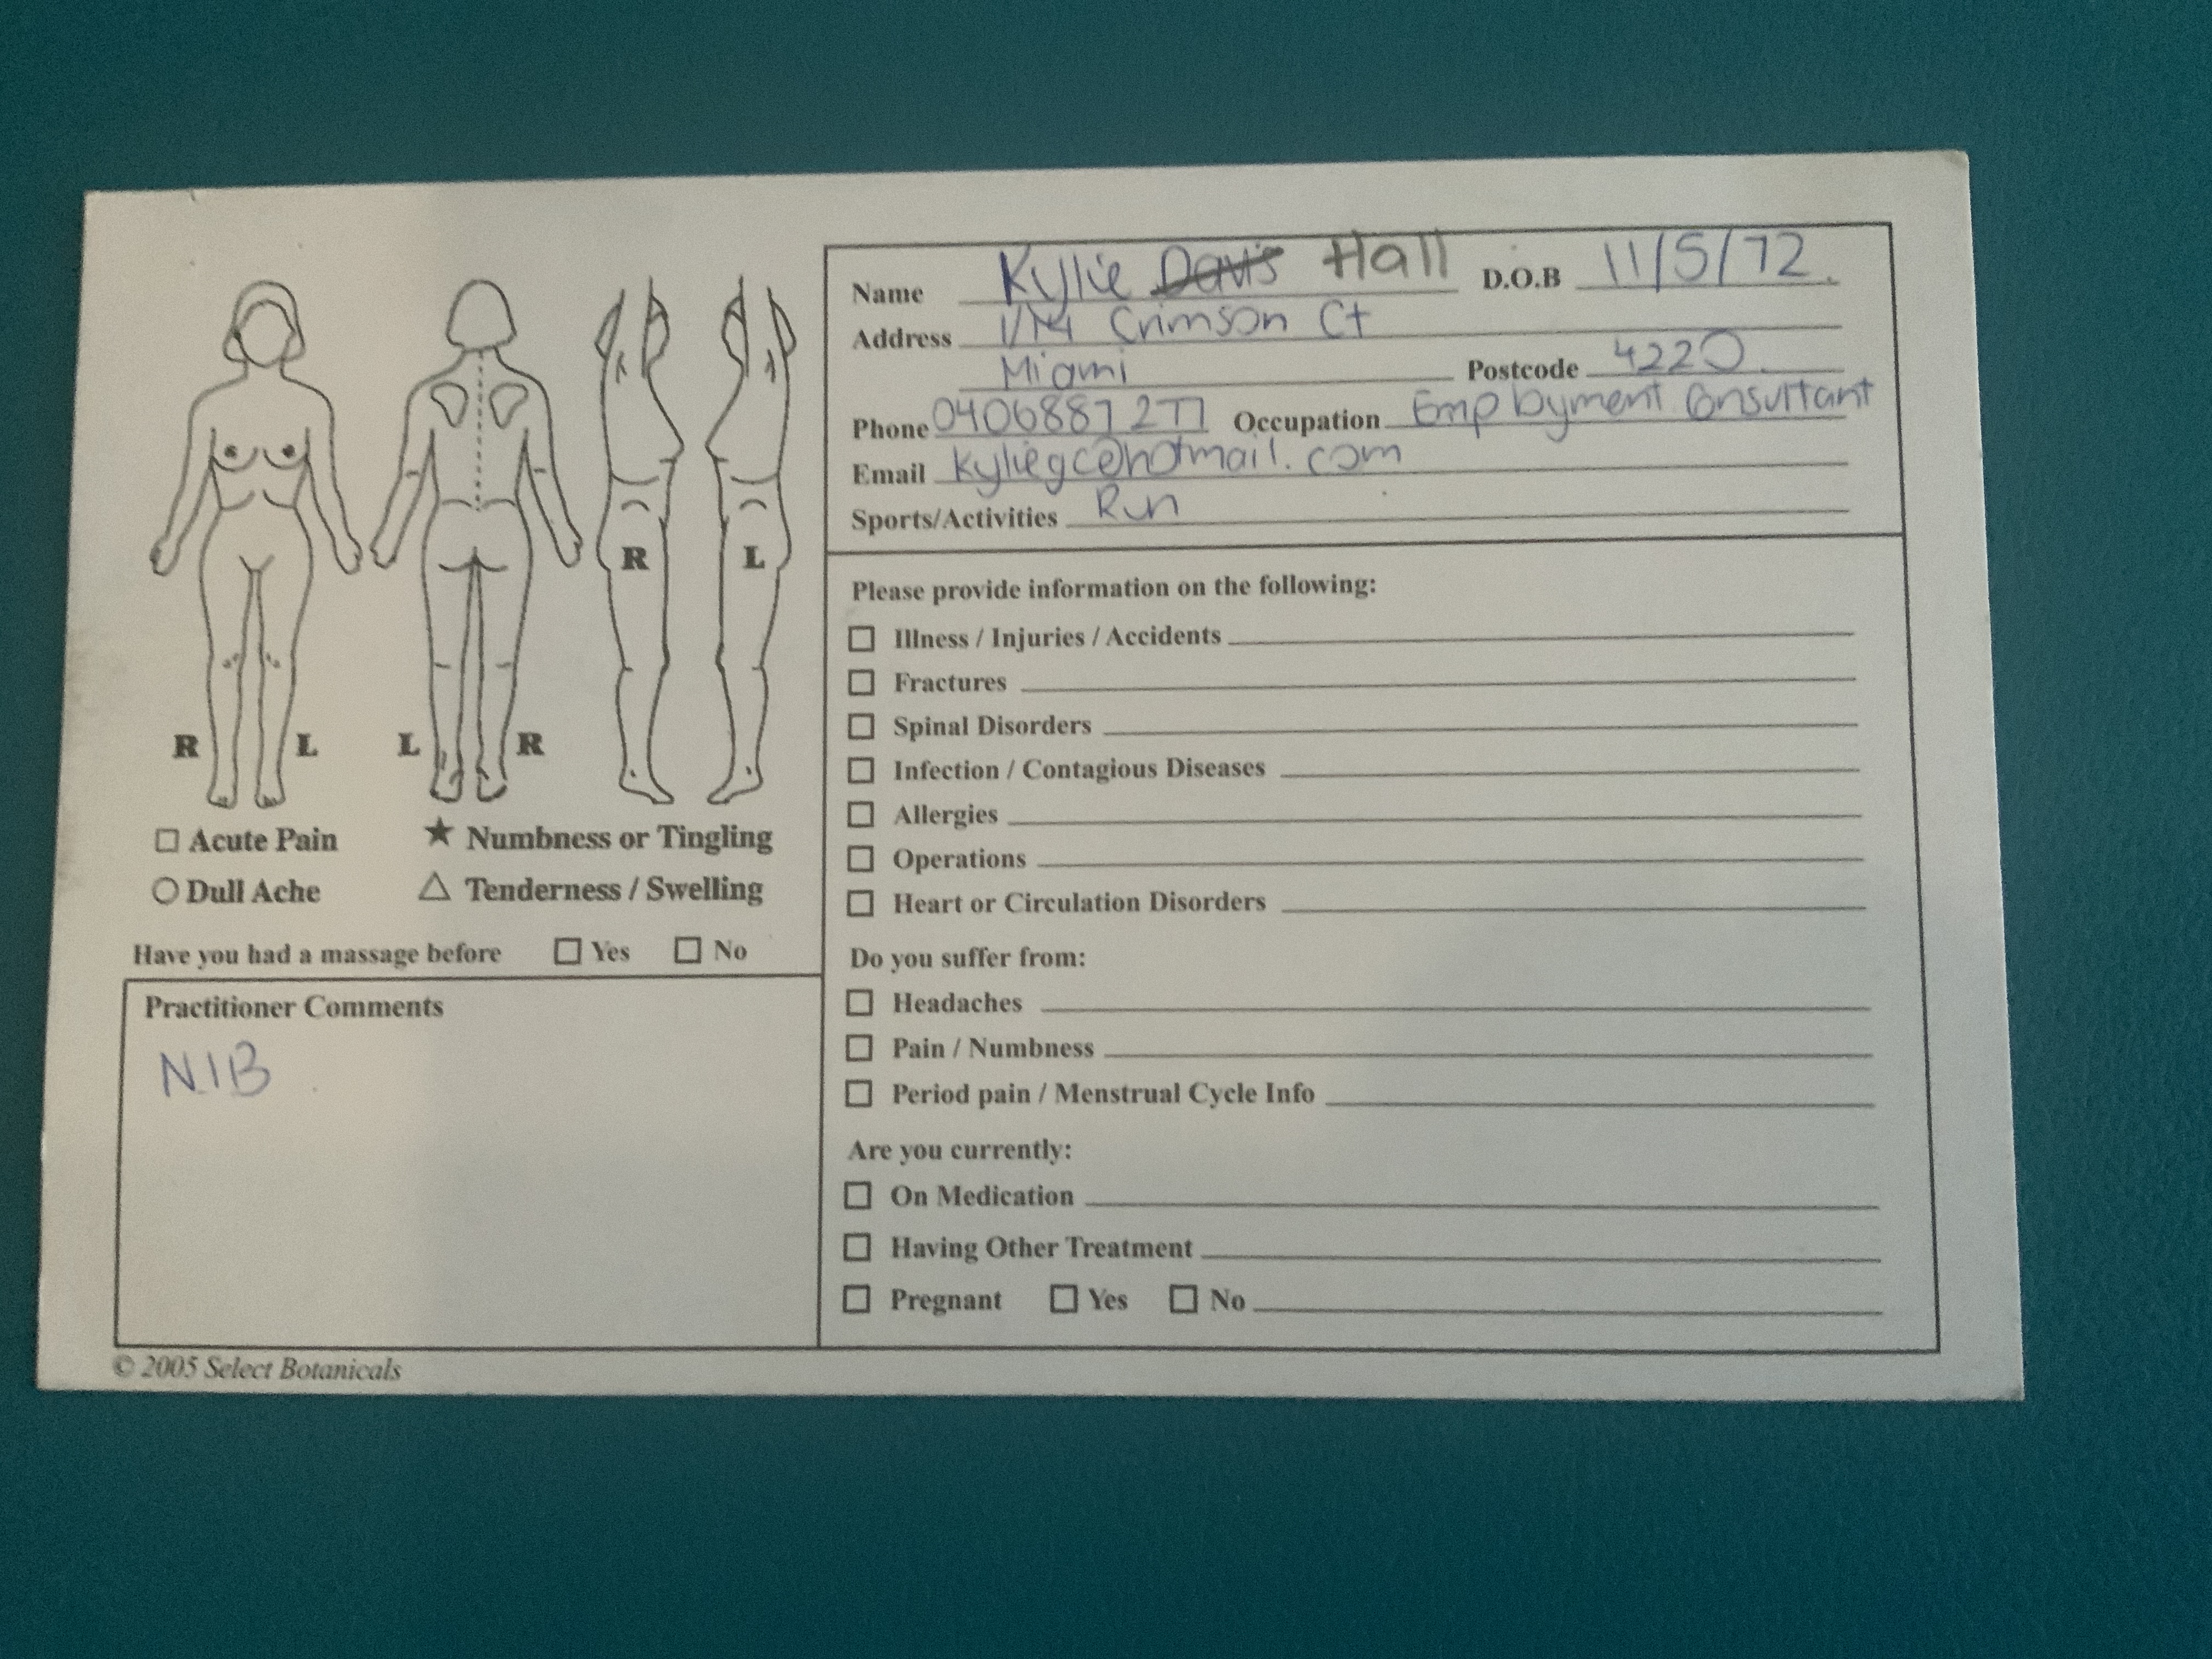 Name Kylie Davis Hall D.O.B 11/5/72.
Address Crimson Ct
Miami Postcode 4220
Phone 0406887277 Occupation Employment Consultant
Email kyliegc@hotmail.com
Sports/Activities Run
R L L R R L
□ Acute Pain ★ Numbness or Tingling
○ Dull Ache △ Tenderness / Swelling
Have you had a massage before □ Yes □ No
Practitioner Comments
NIB
Please provide information on the following:
□ Illness / Injuries / Accidents
□ Fractures
□ Spinal Disorders
□ Infection / Contagious Diseases
□ Allergies
□ Operations
□ Heart or Circulation Disorders
Do you suffer from:
□ Headaches
□ Pain / Numbness
□ Period pain / Menstrual Cycle Info
Are you currently:
□ On Medication
□ Having Other Treatment
□ Pregnant □ Yes □ No
© 2005 Select Botanicals